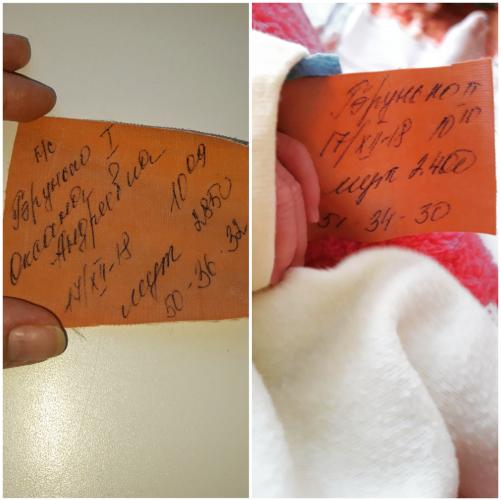 п/с
Брунько I
Оксана
Андреевна
17/XII-18 10 09
муж 2850
50-36-32
Брунько II
17/XII-18 10 10
муж 2400
51-34-30